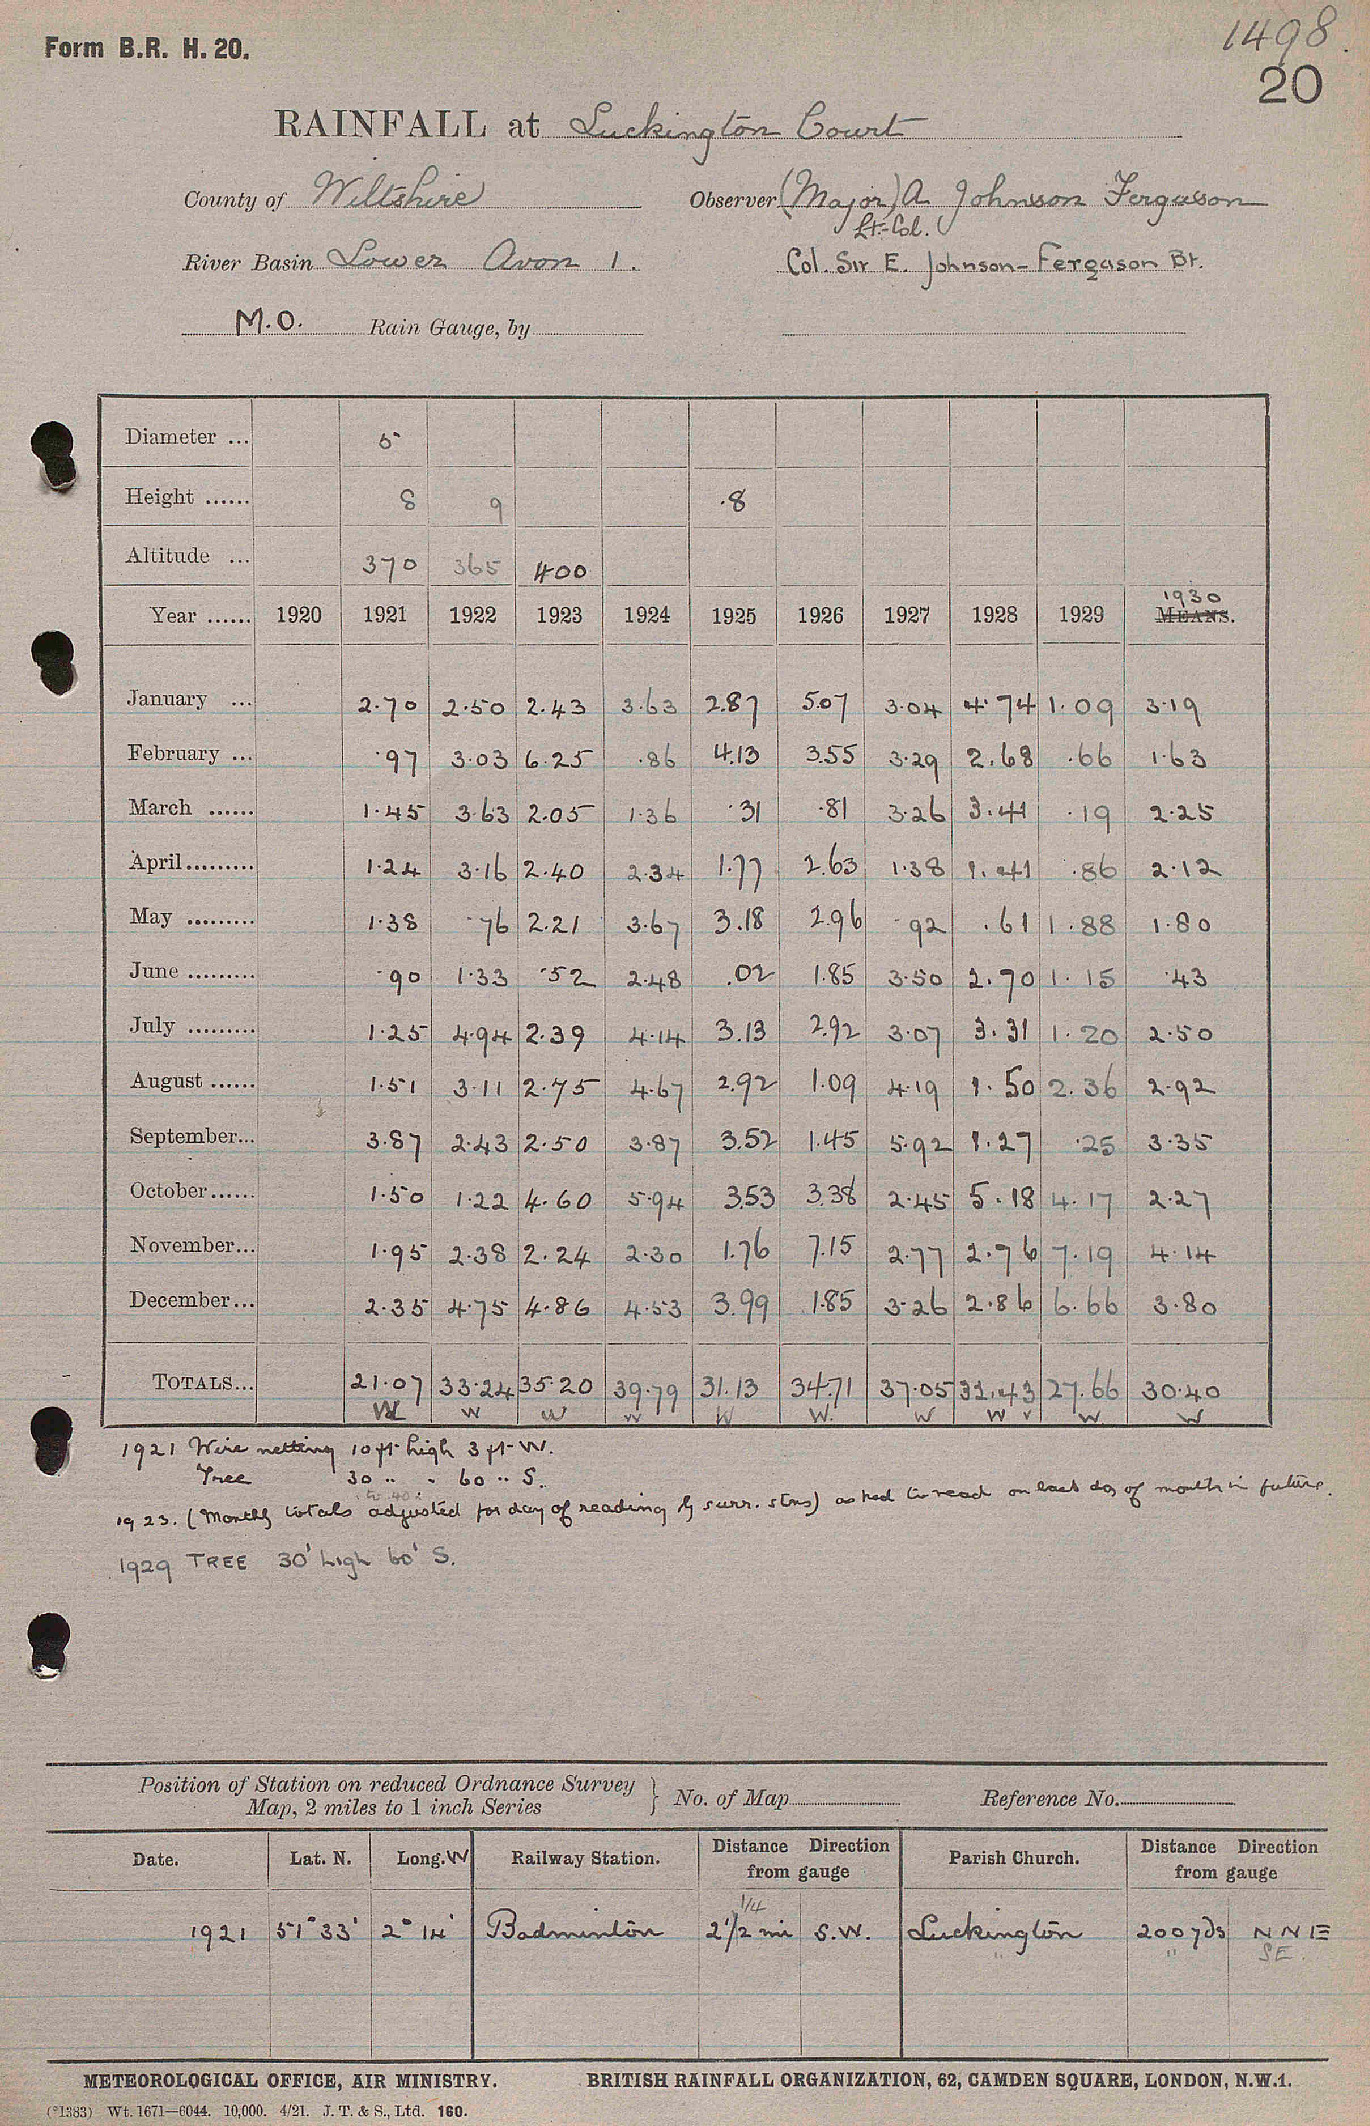 1498.
Form B.R. H. 20.
20
RAINFALL at Luckington Court
County of Wiltshire Observer (Major) A Johnson Ferguson
Lt.-Col.
River Basin Lower Avon 1. Col. Sir E. Johnson-Ferguson Bt.
M.O. Rain Gauge, by
Diameter ... 5
Height ...... 8 9 .8
Altitude ... 370 365 400
1930
Year ...... 1920 1921 1922 1923 1924 1925 1926 1927 1928 1929 MEANS.
January ... 2.70 2.50 2.43 3.63 2.87 5.07 3.04 4.74 1.09 3.19
February ... .97 3.03 6.25 .86 4.13 3.55 3.29 2.68 .66 1.63
March ...... 1.45 3.63 2.05 1.36 .31 .81 3.26 3.41 .19 2.25
April ......... 1.24 3.16 2.40 2.34 1.77 2.63 1.38 1.41 .86 2.12
May ......... 1.38 .76 2.21 3.67 3.18 2.96 .92 .61 1.88 1.80
June ......... .90 1.33 .52 2.48 .02 1.85 3.50 2.70 1.15 .43
July ......... 1.25 4.94 2.39 4.14 3.13 2.92 3.07 3.31 1.20 2.50
August ...... 1.51 3.11 2.75 4.67 2.92 1.09 4.19 1.50 2.36 2.92
September... 3.87 2.43 2.50 3.87 3.52 1.45 5.92 1.27 .25 3.35
October...... 1.50 1.22 4.60 5.94 3.53 3.38 2.45 5.18 4.17 2.27
November... 1.95 2.38 2.24 2.30 1.76 7.15 2.77 2.76 7.19 4.14
December... 2.35 4.75 4.86 4.53 3.99 1.85 3.26 2.86 6.66 3.80
TOTALS... 21.07 33.24 35.20 39.79 31.13 34.71 37.05 32.43 27.66 30.40
W W W W W W. W W v W W
1921 Wire netting 10 ft high 3 ft W.
Tree 30 " " 60 " S.
to 40
1923. (Monthly totals adjusted for day of reading by surr. stns) asked to read on last day of month in future.
1929 TREE 30' high 60' S.
Position of Station on reduced Ordnance Survey
Map, 2 miles to 1 inch Series } No. of Map Reference No.
Date. Lat. N. Long. W Railway Station. Distance Direction from gauge Parish Church. Distance Direction from gauge
1/4
1921 51° 33' 2° 14' Badminton 2 1/2 mi S.W. Luckington 200 yds N N E
" " SE.
METEOROLOGICAL OFFICE, AIR MINISTRY. BRITISH RAINFALL ORGANIZATION, 62, CAMDEN SQUARE, LONDON, N.W.1.
(*1383) Wt. 1671—6044. 10,000. 4/21. J. T. & S., Ltd. 160.